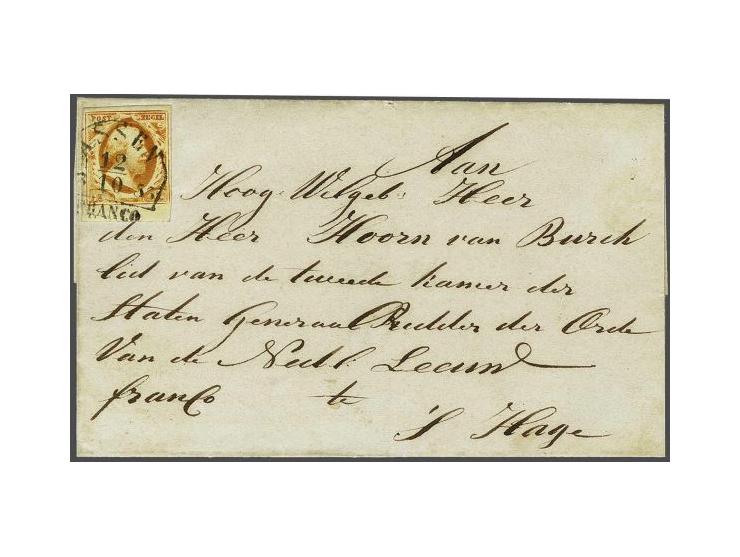 POST ZEGEL
ASSEN
12
10
FRANCO
Aan
Hoog Welgeb: Heer
den Heer Hoorn van Burch
lid van de tweede kamer der
Staten Generaal Ridder der Orde
Van de Nedl: Leeuw
franco te
'S Hage